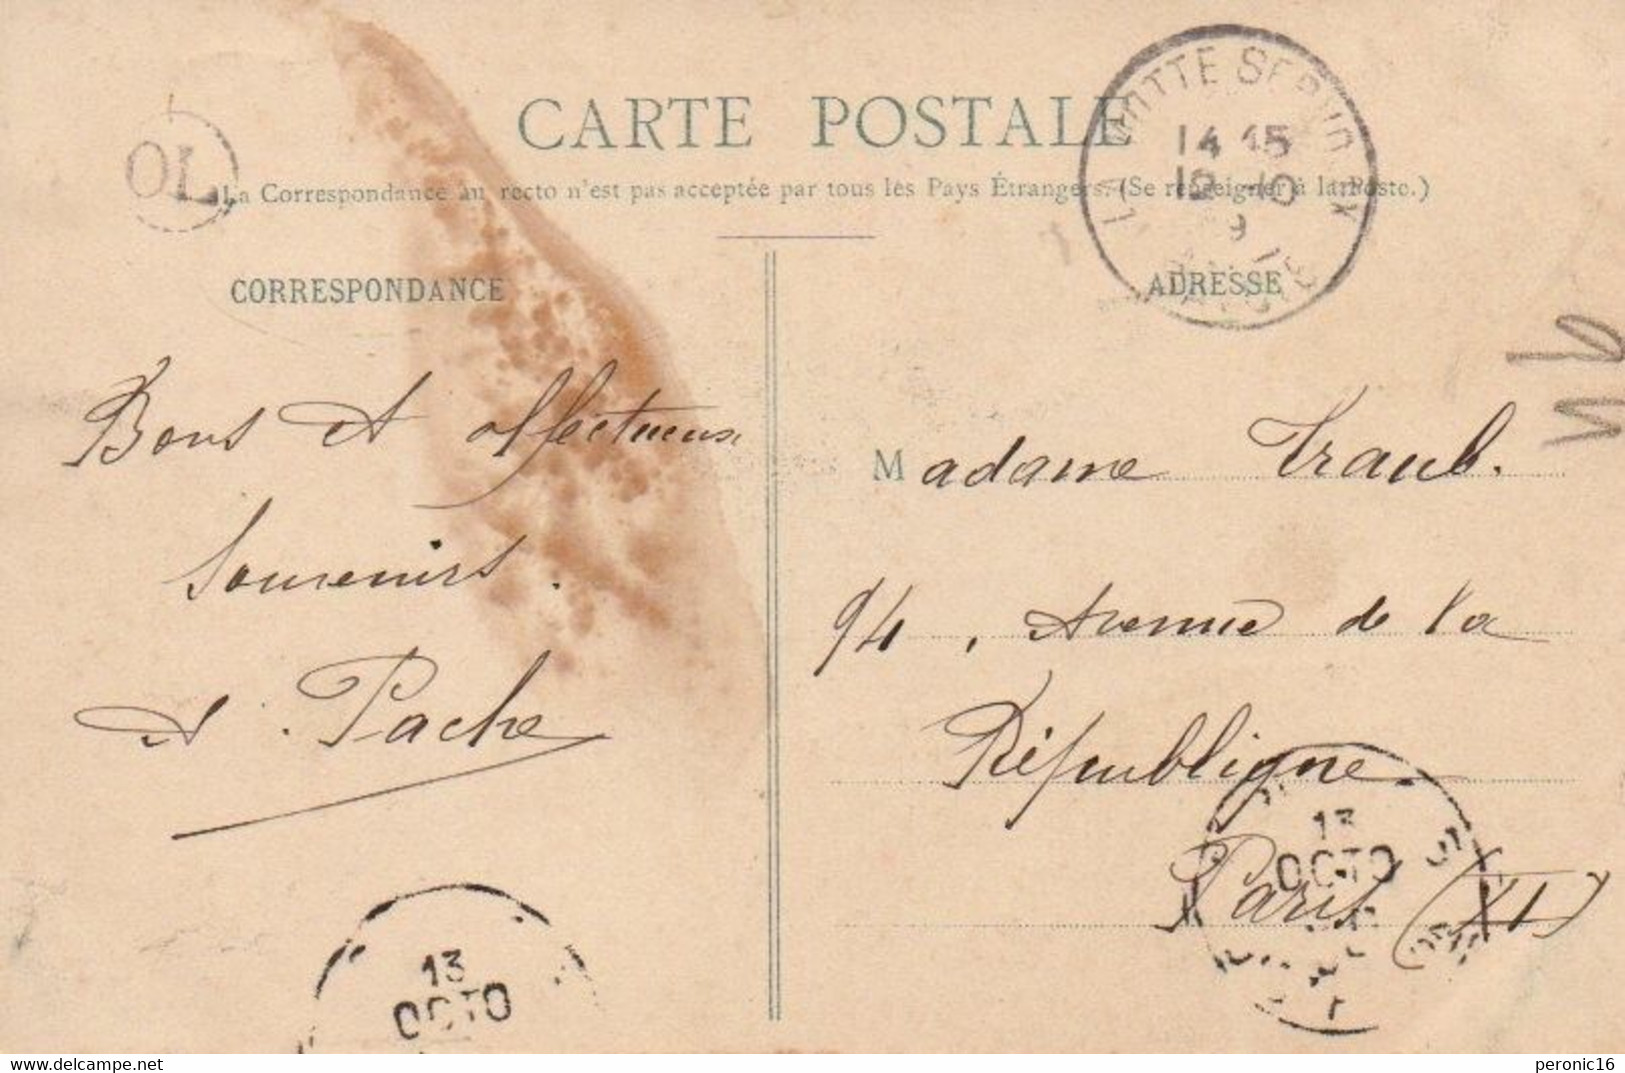 CARTE POSTALE
La Correspondance au recto n'est pas acceptée par tous les Pays Étrangers. (Se renseigner à la Poste.)
OL
14 15
12 -10
9
CORRESPONDANCE
Bons et affectueux
souvenirs.
Pache
ADRESSE
Madame Traub.
94, Avenue de la
République
Paris (XI)
13
OCTO
13
OCTO
peronic16